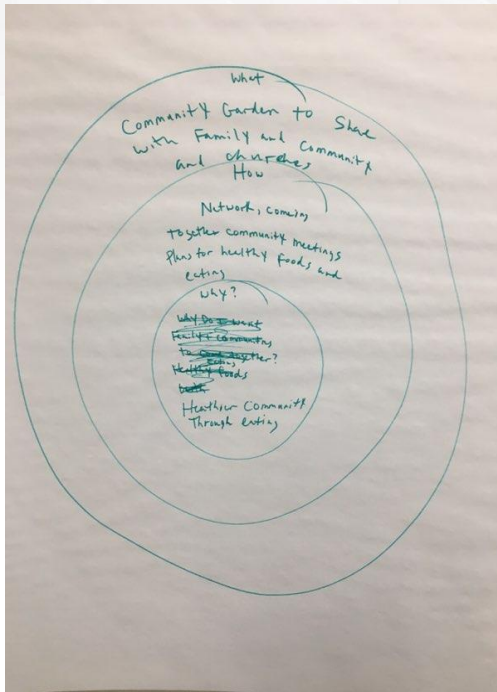 What
Community Garden to Share
with Family and Community
and churches
How
Network, coming
together community meetings
Plans for healthy foods and
eating
Why?
Why Do I want
Family + Community
to Come together?
Eating
Healthy foods
Healthier Community
Through eating